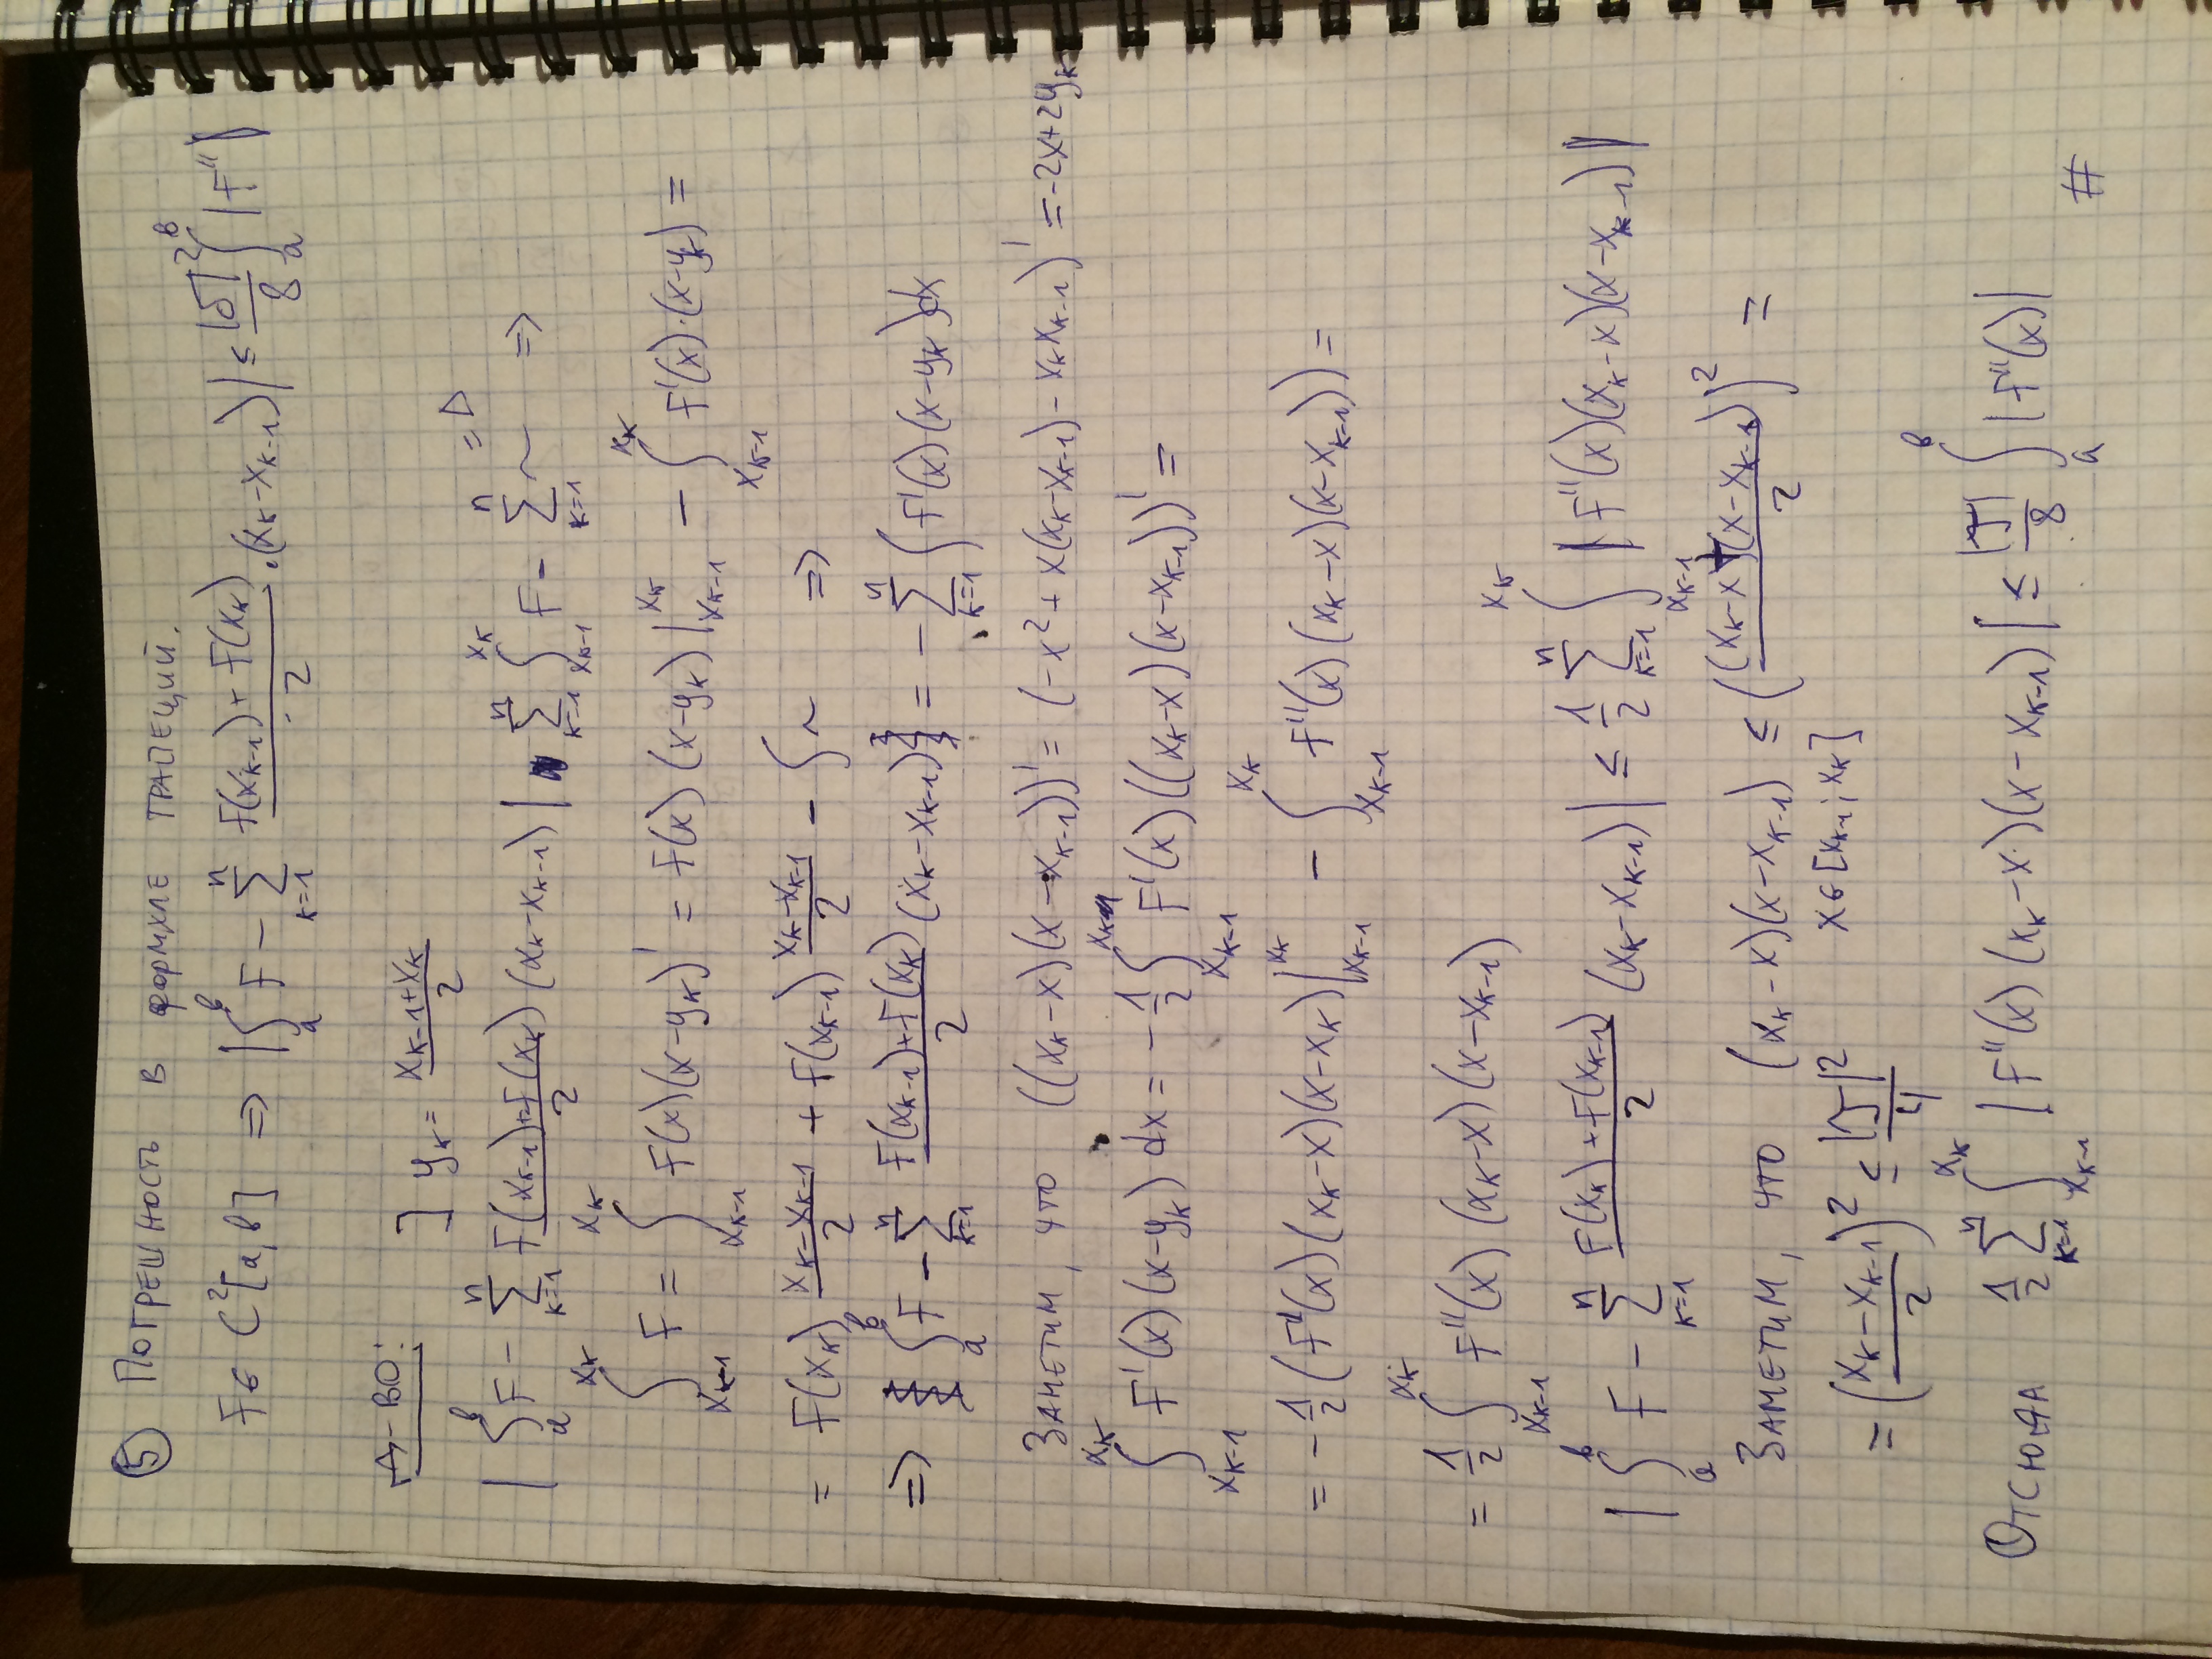 ⑤ Погрешность в формуле трапеций.
F ∈ C²[a,b] ⇒ |∫_a^b F − ∑_{k=1}^n (F(x_{k-1}) + F(x_k))/2 · (x_k − x_{k-1})| ≤ |τ|²/8 ∫_a^b |F''|
Д-во: ] y_k = (x_{k-1} + x_k)/2
|∫_a^b F − ∑_{k=1}^n (F(x_{k-1}) + F(x_k))/2 (x_k − x_{k-1})| ∑_{k=1}^n ∫_{x_{k-1}}^{x_k} F − ∑_{k=1}^n ~ = Δ ⇒
∫_{x_{k-1}}^{x_k} F = ∫_{x_{k-1}}^{x_k} F(x)(x−y_k)' = F(x)(x−y_k)|_{x_{k-1}}^{x_k} − ∫_{x_{k-1}}^{x_k} F'(x)·(x−y_k) =
= F(x_k) (x_k − x_{k-1})/2 + F(x_{k-1}) (x_k − x_{k-1})/2 − ∫~ ⇒
⇒ ∫_a^b F − ∑_{k=1}^n (F(x_{k-1}) + F(x_k))/2 (x_k − x_{k-1}) = − ∑_{k=1}^n ∫ F'(x)(x−y_k)dx
Заметим, что ((x_k − x)(x − x_{k-1}))' = (−x² + x(x_k − x_{k-1}) − x_k x_{k-1})' = −2x+2y_k
∫_{x_{k-1}}^{x_k} F'(x)(x−y_k) dx = −1/2 ∫_{x_{k-1}}^{x_k} F'(x)((x_k−x)(x−x_{k-1}))' =
= −1/2 (F'(x)(x_k−x)(x−x_k)|_{x_{k-1}}^{x_k} − ∫_{x_{k-1}}^{x_k} F''(x)(x_k−x)(x−x_{k-1})) =
= 1/2 ∫_{x_{k-1}}^{x_k} F''(x)(x_k−x)(x−x_{k-1})
|∫_a^b F − ∑_{k=1}^n (F(x_k) + F(x_{k-1}))/2 (x_k − x_{k-1})| ≤ 1/2 ∑_{k=1}^n ∫_{x_{k-1}}^{x_k} |F''(x)(x_k−x)(x−x_{k-1})|
Заметим, что (x_k − x)(x − x_{k-1}) ≤ (((x_k−x)+(x−x_{k-1}))/2)² =
= ((x_k − x_{k-1})/2)² ≤ |τ|²/4 x∈[x_{k-1}; x_k]
Отсюда 1/2 ∑_{k=1}^n ∫_{x_{k-1}}^{x_k} |F''(x)(x_k−x)(x−x_{k-1})| ≤ |τ|/8 ∫_a^b |F''(x)|
#